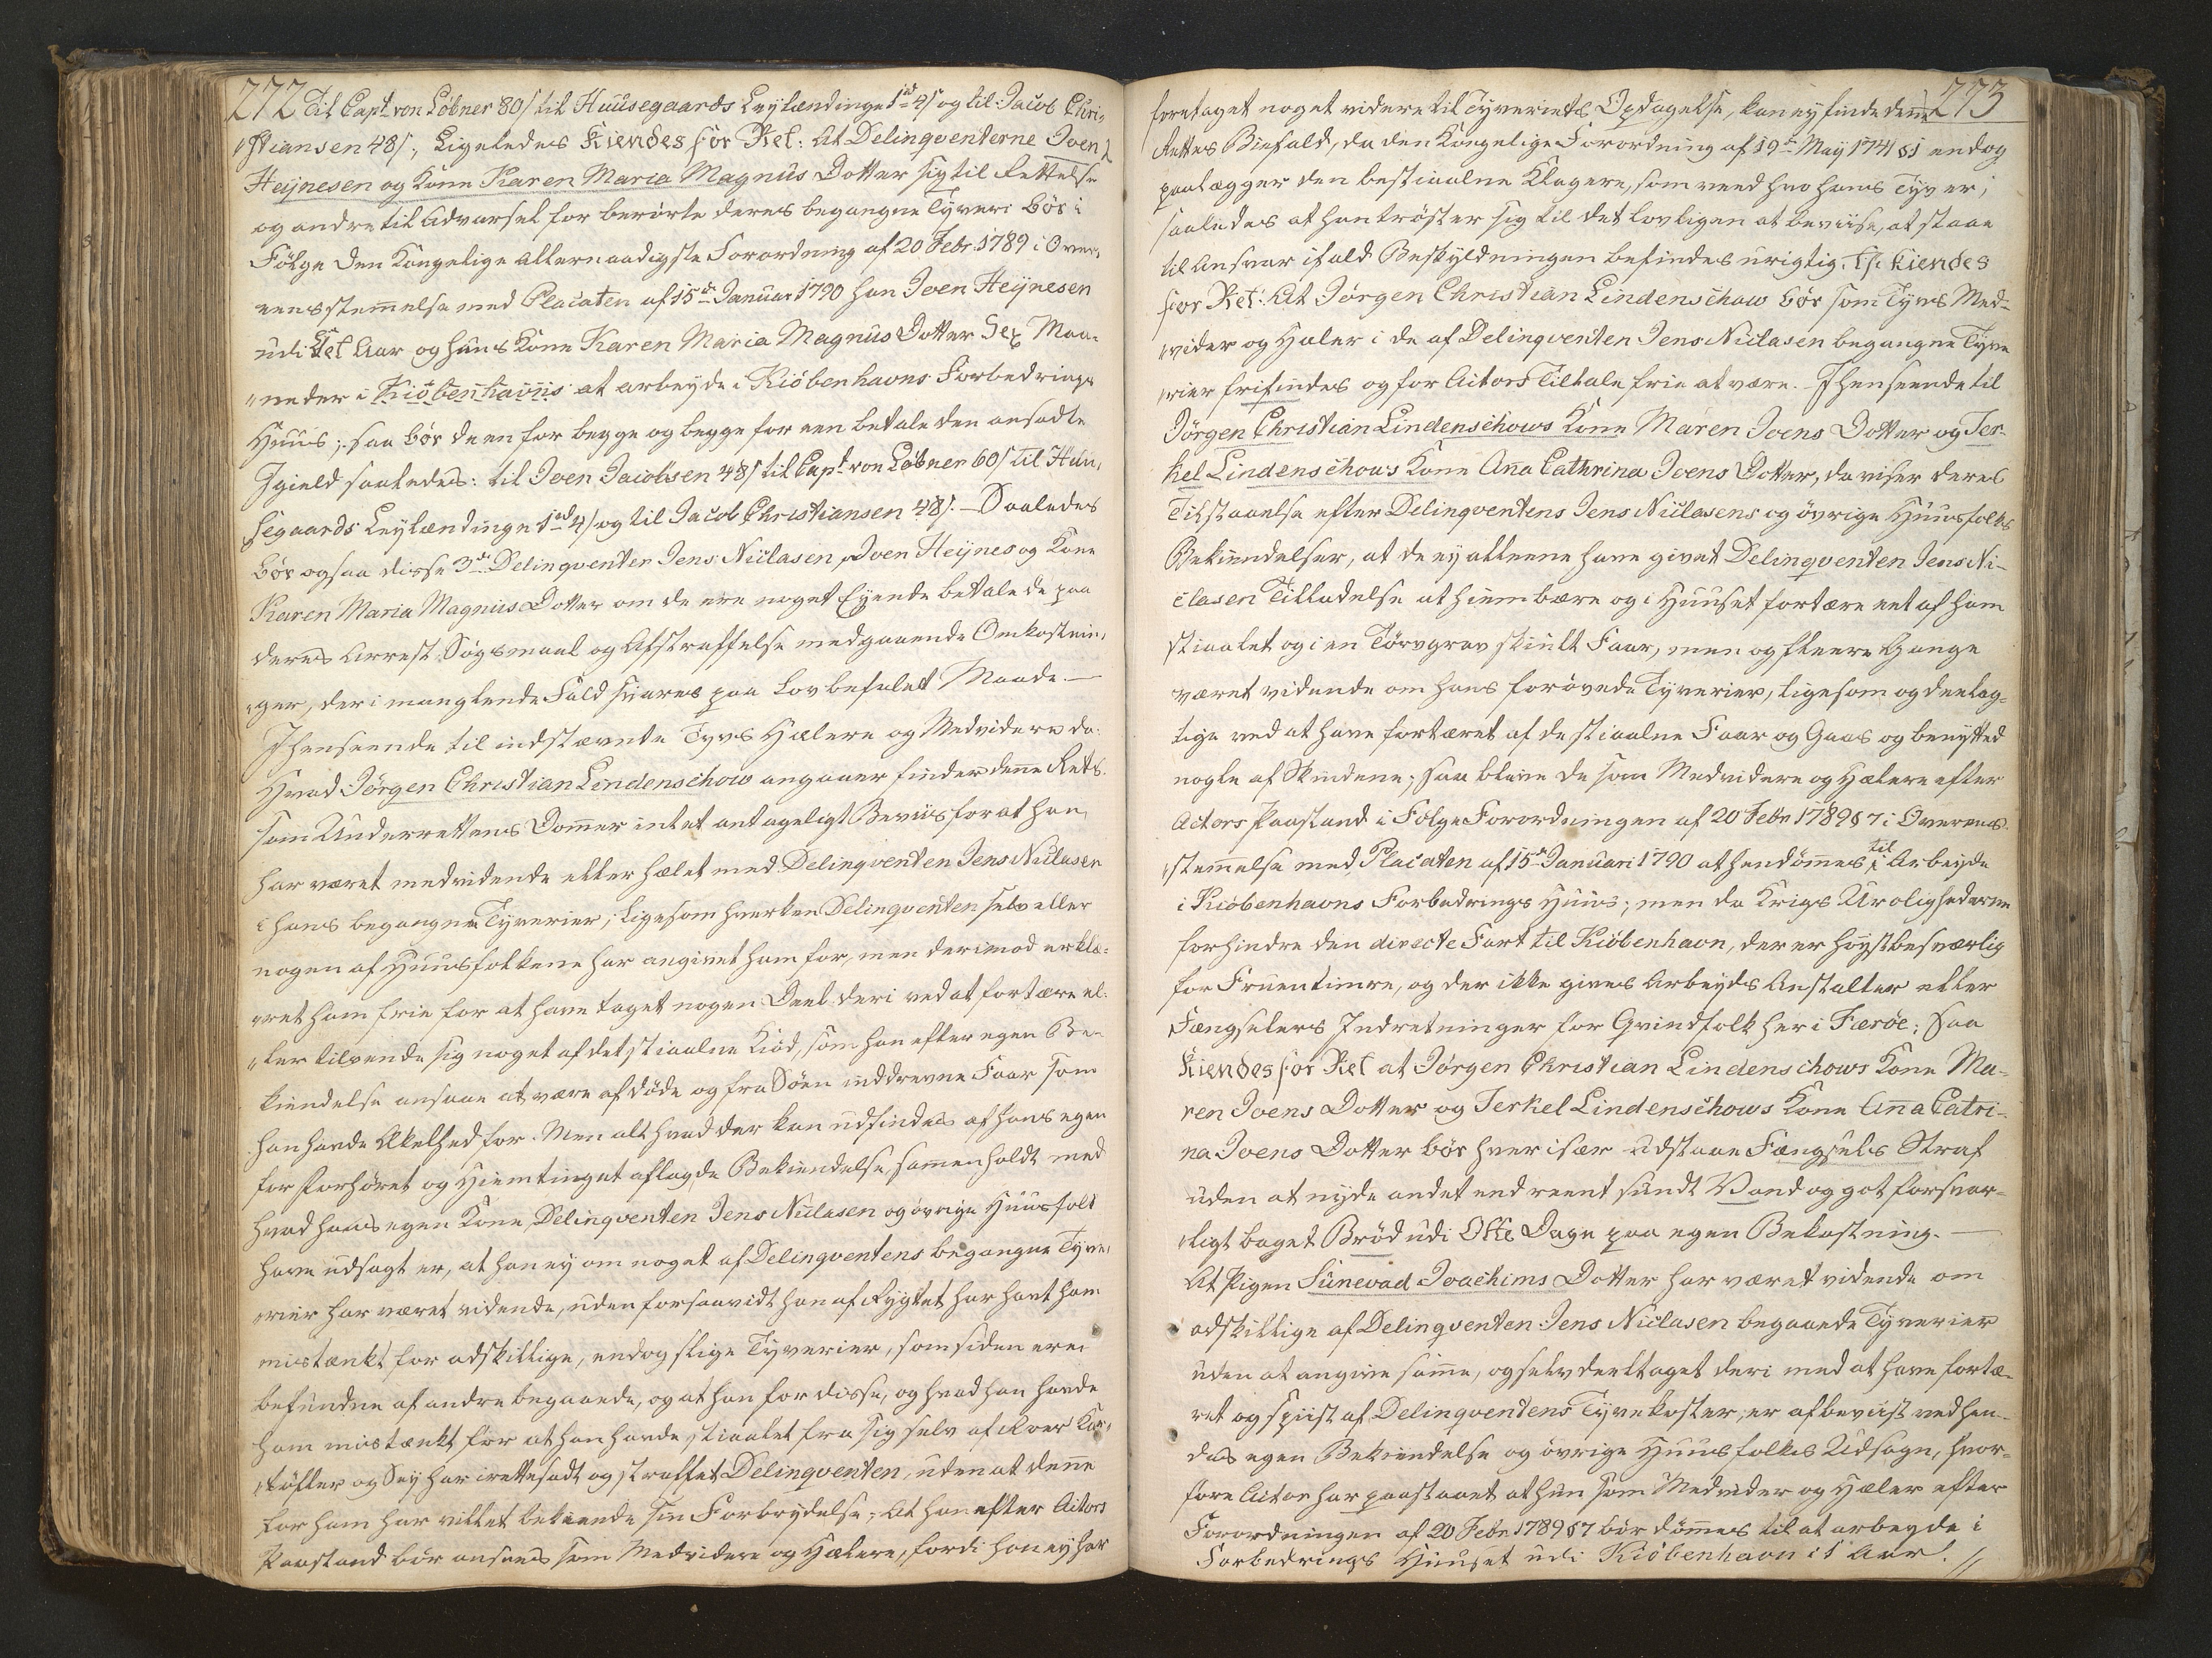 272
Til Capt. von Löbner 80 s til Huusegaards Leylændinge 1 rd 4 s og til Jacob Chri-
stiansen 48 s; Ligeledes Kiendes for Ret: At Delinqventerne Joen
Heÿnesen og Kone Karen Maria Magnus Dotter sig til Rettelse
og andre til Advarsel for berörte deres begangne Tyveri bör i
Fölge Den Kongelige Allernaadigste Forordning af 20 Febr. 1789 i Over-
eensstemmelse med Placaten af 15de Januar 1790 han Joen Heÿnesen
udi Et Aar og hans Kone Karen Maria Magnus Dotter Sex Maa-
neder i Kiöbenhavns at arbeyde i Kiöbenhavns Forbedrings
Huus; saa bör de een for begge og begge for een betale den ansadte
Igield saaledes: til Joen Jacobsen 48 s til Capt. von Löbner 60 s til Huu-
segaards Leylændinge 1 rd 4 s og til Jacob Christiansen 48 s. — Saaledes
bör ogsaa disse 3de Delinqventer Jens Niclasen, Joen Heÿnes og Kone
Karen Maria Magnus Dotter om de ere noget Eyende betale de paa
deres Arrest, Sögsmaal og Afstraffelse medgaaende Omkostnin-
ger, der i manglende Fald svares paa Lovbefalet Maade. —
I henseende til indstævnte Tyvs Hælere og Medvidere da:
Hvad Jörgen Christian Lindenschow angaaer finder denne Rets
som Underrettens Dommer intet antageligt Beviis for at han
har været medvidende eller hælet med Delinqventen Jens Niclasen
i hans begangne Tyverier, ligesom hverken Delinqventen selv eller
nogen af Huusfolkene har angivet ham for, men derimod erklæ-
ret ham frie for at have taget nogen Deel deri ved at fortære el-
ler tilvende sig noget af det stiaalne Kiöd, som han efter egen Be-
kiendelse ansaae at være af döde og fra Söen inddrevne Faar som
han havde Ækelhed for. Men alt hvad der kan udfindes af hans egen
for Forhöret og Hiemtinget aflagde Bekiendelse, sammenholdt med
hvad hans egen Kone, Delinqventen Jens Niclasen og övrige Huusfolk
have udsagt er, at han ey om noget af Delinqventens begangne Tyve-
rier har været vidende, uden forsaavidt han af Rygtet har havt ham
mistænkt for adskillige, endog slige Tyverier, som siden ere
befundne af andre begaaede, og at han for disse, og hvad han havde
ham mistænkt for at han havde stiaalet fra sig selv af Roer Kar-
töfler og Sey har irettesadt og straffet Delinqventen, uden at denne
for ham har villet bekiende sin Forbrydelse; At han efter Actors
Paastand bör ansees som Medvidere og Hælere, fordi han ey har
273
foretaget noget videre til Tyveriets Opdagelse, kan ey finde denne
Rettes Biefald, da den Kongelige Forordning af 19de Maÿ 1741 § 1 endog
paalægger den bestiaalne Klagere, som veed hvo hans Tyv er,
saaledes at han tröster sig til det lovligen at beviise, at staae
til Ansvar ifald Beskyldningen befindes urigtig. Thi kiendes
for Ret: At Jörgen Christian Lindenschow bör som Tyvs Med-
vider og Hæler i de af Delinqventen Jens Niclasen begangne Tyve
rier frifindes og for Actors Tiltale frie at være. — I henseende til
Jörgen Christian Lindenschows Kone Maren Joens Dotter og Ter-
kel Lindenschows Kone Anna Cathrina Joens Dotter, da viser deres
Tilstaaelse efter Delinqventens Jens Niclasens og övrige Huusfolks
Bekiendelser, at de ey alleene have givet Delinqventen Jens Ni-
clasen Tilladelse at hiembære og i Huuset fortære eet af ham
stiaalet og i en Törvgrav skiult Faar, men og fleere Gange
været vidende om hans forövede Tyverier, ligesom og deelag-
tige ved at have fortæret af de stiaalne Faar og Gaas og benytted
nogle af Skindene; saa bleve de som Medvidere og Hælere efter
Actors Paastand i Fölge Forordningen af 20 Febr 1789 § 7 i Overeens-
stemmelse med Placaten af 15de Januari 1790 at hendömmes til Arbeyde
i Kiöbenhavns Forbedrings Huus; men da Krigs Urolighederne
forhindre den directe Fart til Kiöbenhavn, der er höystbesværlig
for Fruentimre, og der ikke gives Arbeyds Anstalter eller
Fængselers Indretninger for Qvindfolk her i Færöe; Saa
Kiendes for Ret at Jörgen Christian Lindenschows Kone Ma-
ren Joens Dotter og Terkel Lindenschows Kone Anna Catri-
na Joens Dotter bör hver især udstaae Fængsels Straf
uden at nyde andet end reent sundt Vand og got forsvar-
ligt baget Bröd udi Otte Dage paa egen Bekostning. —
At Pigen Sunevad Joachims Dotter har været vidende om
adskillige af Delinqventen Jens Niclasen begaaede Tyverier
uden at angive samme, og selv deeltaget deri med at have fortæ-
ret og spiist af Delinqventens Tyvekoster, er afbeviist ved hen-
des egen Bekiendelse og övrige Huusfolkes Udsagn, hvor-
fore Actor har paastaaet at hun som Medvider og Hæler efter
Forordningen af 20 Febr 1789 § 7 bör dömmes til at arbeyde i
Forbedrings Huuset udi Kiöbenhavn i 1 Aar. //